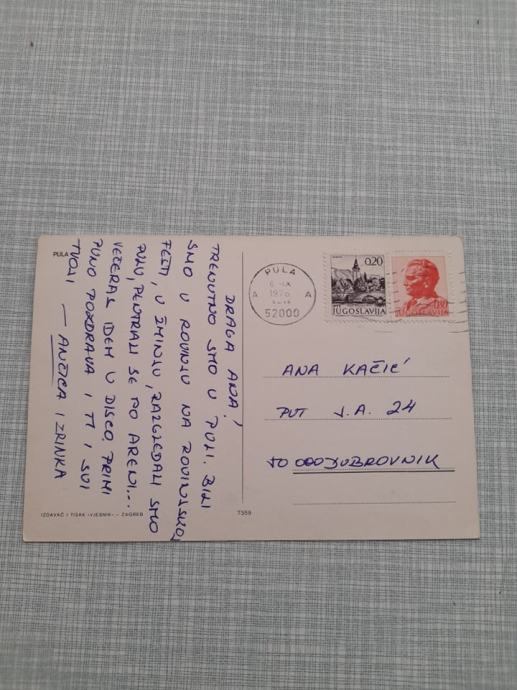 PULA
DRAGA ANA,
TRENUTNO SMO U PULI. BILI
SMO U ROVINJU NA ROVINJSKOJ
FEŠTI, U ŽMINJU, RAZGLEDALI SMO
PULU, PENTRALI SE PO ARENI...
VEČERAS IDEM U DISCO, PRIMI
PUNO POZDRAVA I TI I SVI
TVOJI — ANČICA I ZRINKA
IZDAVAČ I TISAK «VJESNIK» – ZAGREB
7359
PULA
1976
A A
52000
0,20
JUGOSLAVIJA
0,80
JUGOSLAVIJA
ANA KAČIĆ
PUT J.A. 24
50 000 DUBROVNIK